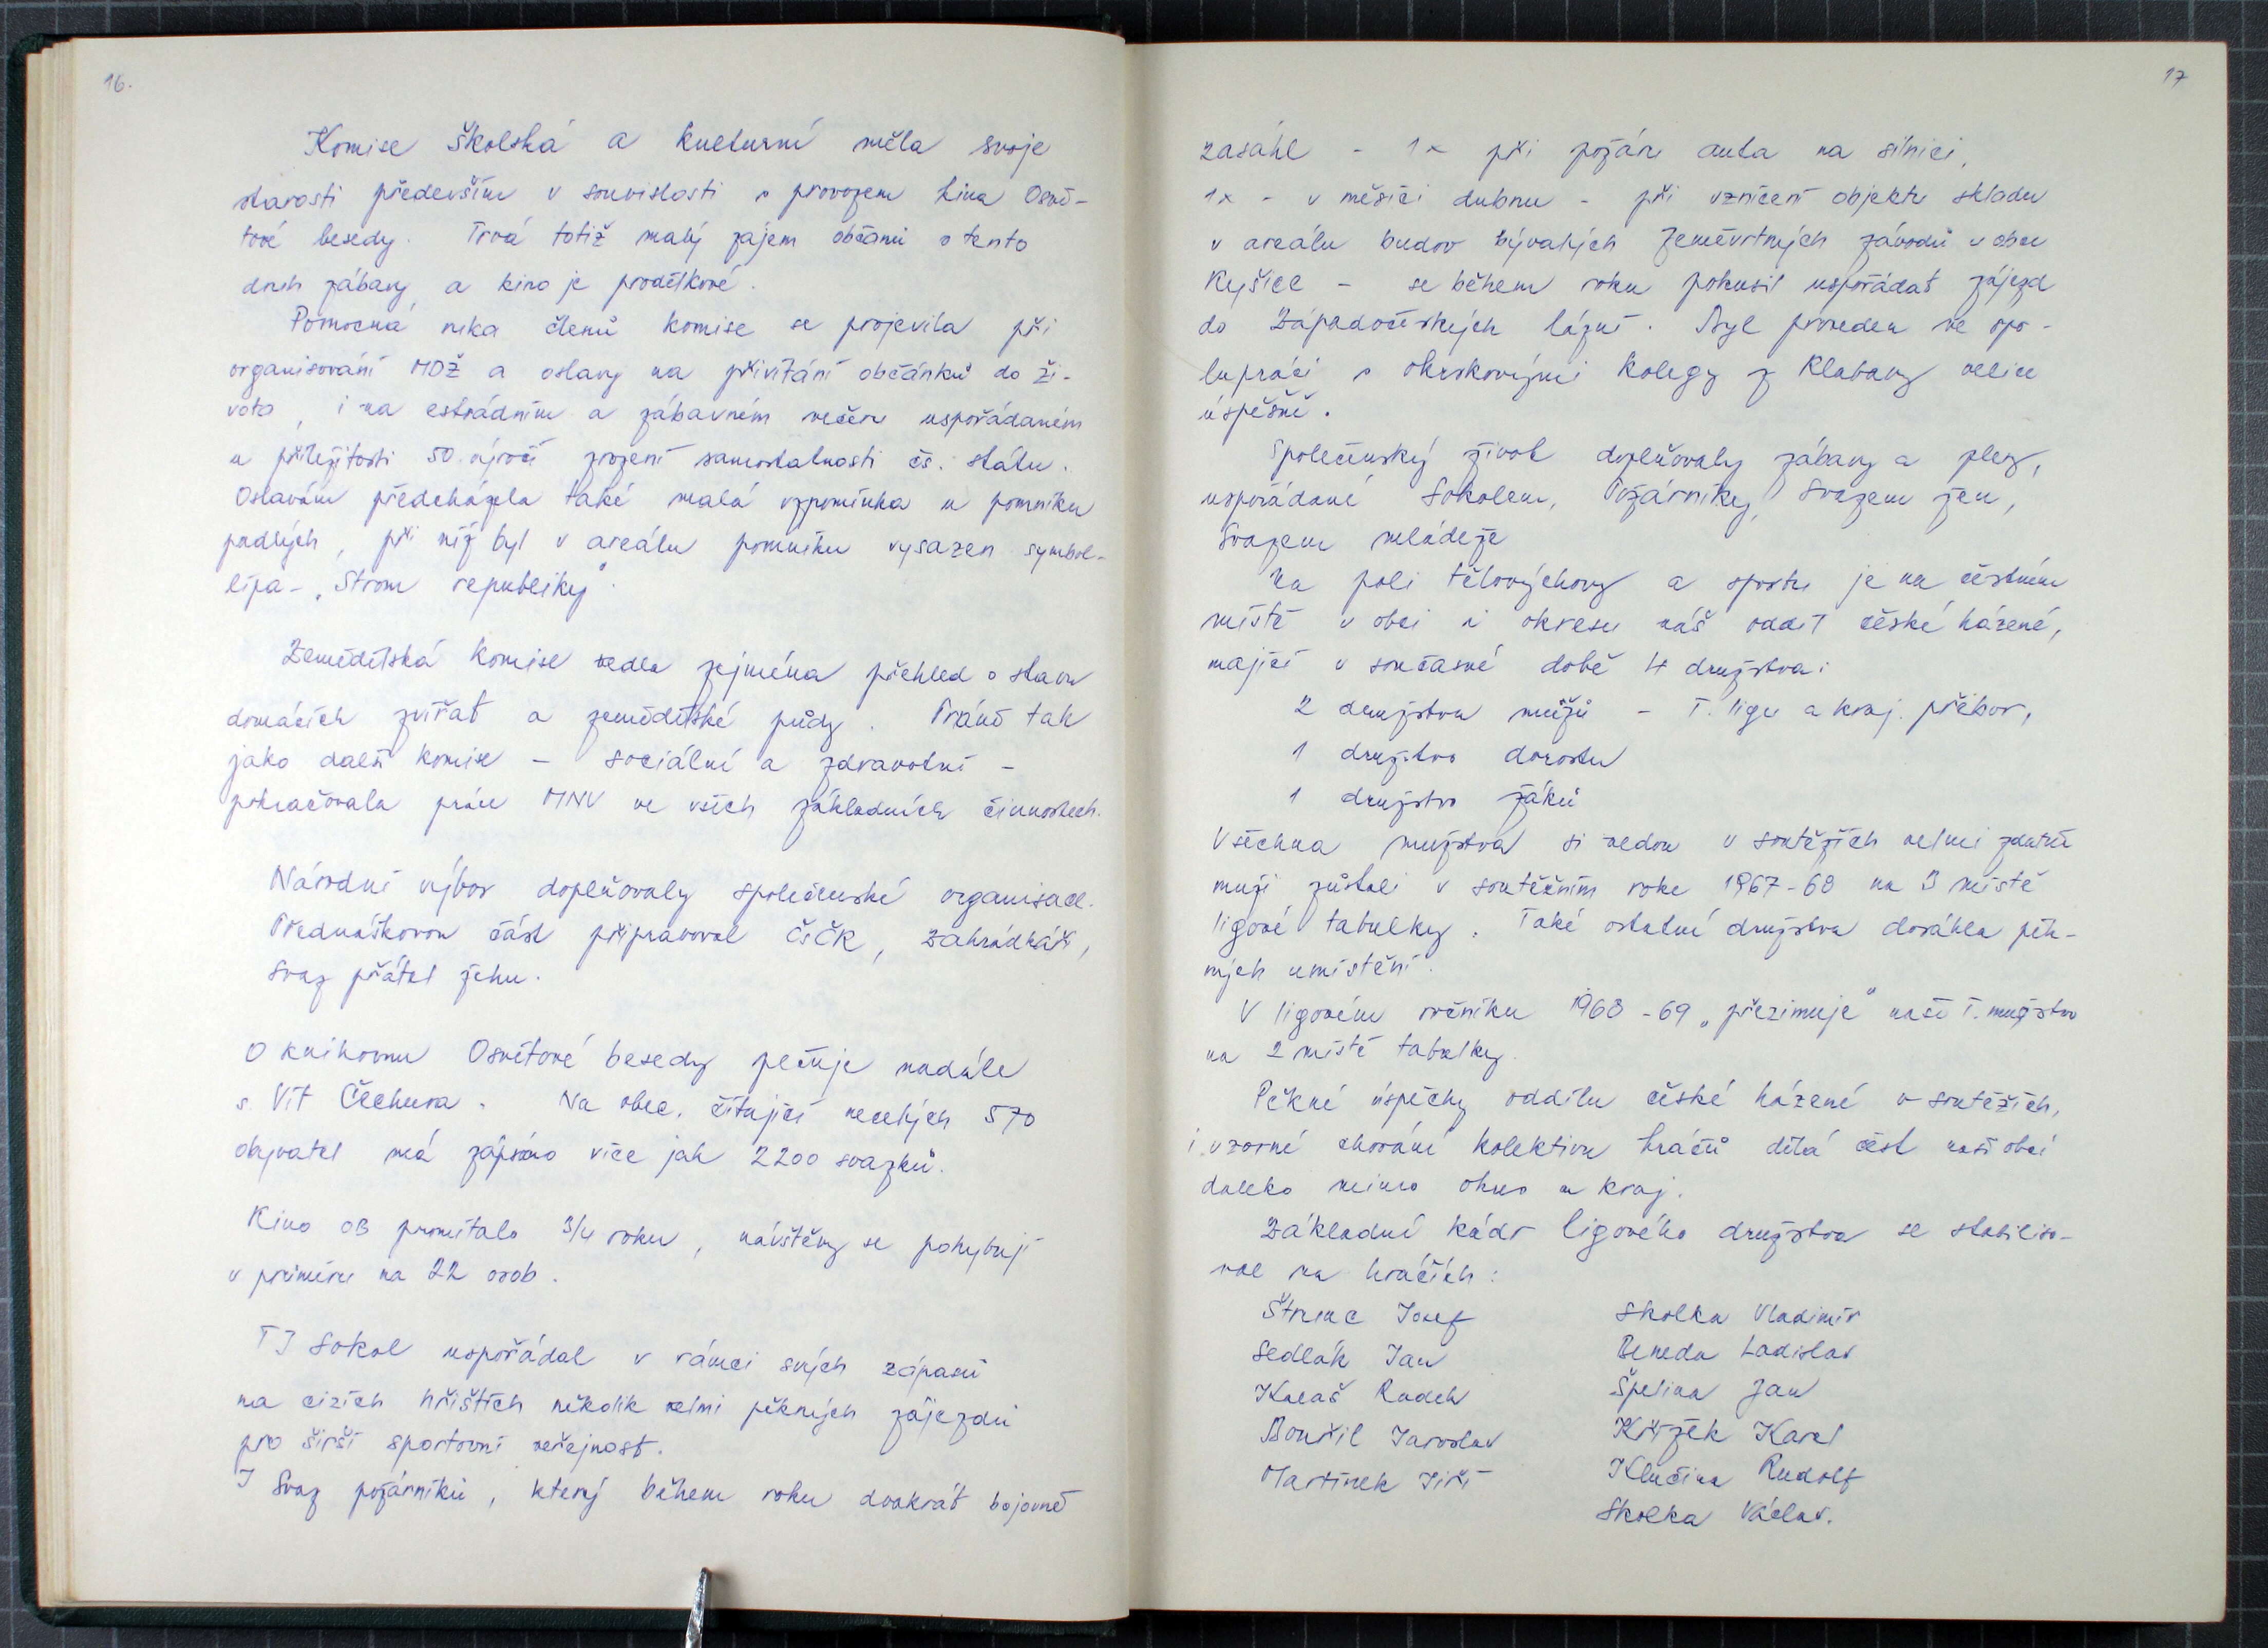 16.
Komise školská a kulturní měla svoje
starosti především v souvislosti s provozem kina Osvě-
tové besedy. Trvá totiž malý zájem občanů o tento
druh zábavy a kino je prodělkové.
Pomocná ruka členů komise se projevila při
organisování MDŽ a oslavy na přivítání občánků do ži-
vota, i na estrádním a zábavném večeru uspořádaném
u příležitosti 50. výročí zrození samostatnosti čs. státu.
Oslavám předcházela také malá vzpomínka u pomníku
padlých, při níž byl v areálu pomníku vysazen symbol-
lípa - "Strom republiky".
Zemědělská komise vedla zejména přehled o stavu
domácích zvířat a zemědělské půdy. Právě tak
jako další komise - sociální a zdravotní -
pokračovala práce MNV ve všech základních činnostech.
Národní výbor doplňovaly společenské organisace.
Přednáškovou část připravoval ČsČK, zahrádkáři,
Svaz přátel žehu.
O knihovnu Osvětové besedy pečuje nadále
s. Vít Čechura. Na obec, čítající necelých 570
obyvatel má zapsáno více jak 2200 svazků.
Kino OB promítalo 3/4 roku, návštěvy se pohybují
v průměru na 22 osob.
TJ Sokol uspořádal v rámci svých zápasů
na cizích hřištích několik velmi pěkných zájezdů
pro širší sportovní veřejnost.
I Svaz požárníků, který během roku dvakrát bojovně
17
zasáhl - 1x při požáru auta na silnici,
1x - v měsíci dubnu - při vznícení objektu skladu
v areálu budov bývalých Zeměvrtných závodů v obci
Kyšice - se během roku pokusil uspořádat zájezd
do Západočeských lázní. Byl proveden ve spo-
lupráci s okrskovými kolegy z Klabavy velice
úspěšně.
Společenský život doplňovaly zábavy a plesy,
uspořádané Sokolem, Požárníky, Svazem žen,
Svazem mládeže
Na poli tělovýchovy a sportu je na čestném
místě v obci i okresu náš oddíl české házené,
mající v současné době 4 družstva:
2 družstva mužů - I. ligu a kraj. přebor,
1 družstvo dorostu
1 družstvo žáků
Všechna mužstva si vedou v soutěžích velmi zdatně
muži zůstali v soutěžním roce 1967-68 na 3 místě
ligové tabulky. Také ostatní družstva dosáhla pěk-
ných umístění.
V ligovém ročníku 1968-69 "přezimuje" naše I. mužstvo
na 2 místě tabulky.
Pěkné úspěchy oddílu české házené v soutěžích,
i vzorné chování kolektivu hráčů dělá čest naší obci
daleko mimo okres a kraj.
Základní kádr ligového družstva se stabiliso-
val na hráčích:
Štrunc Josef Skolka Vladimír
Sedlák Jan Beneda Ladislav
Kalaš Radek Špelina Jan
Bouřil Jaroslav Křížek Karel
Martínek Jiří Klučina Rudolf
Skolka Václav.